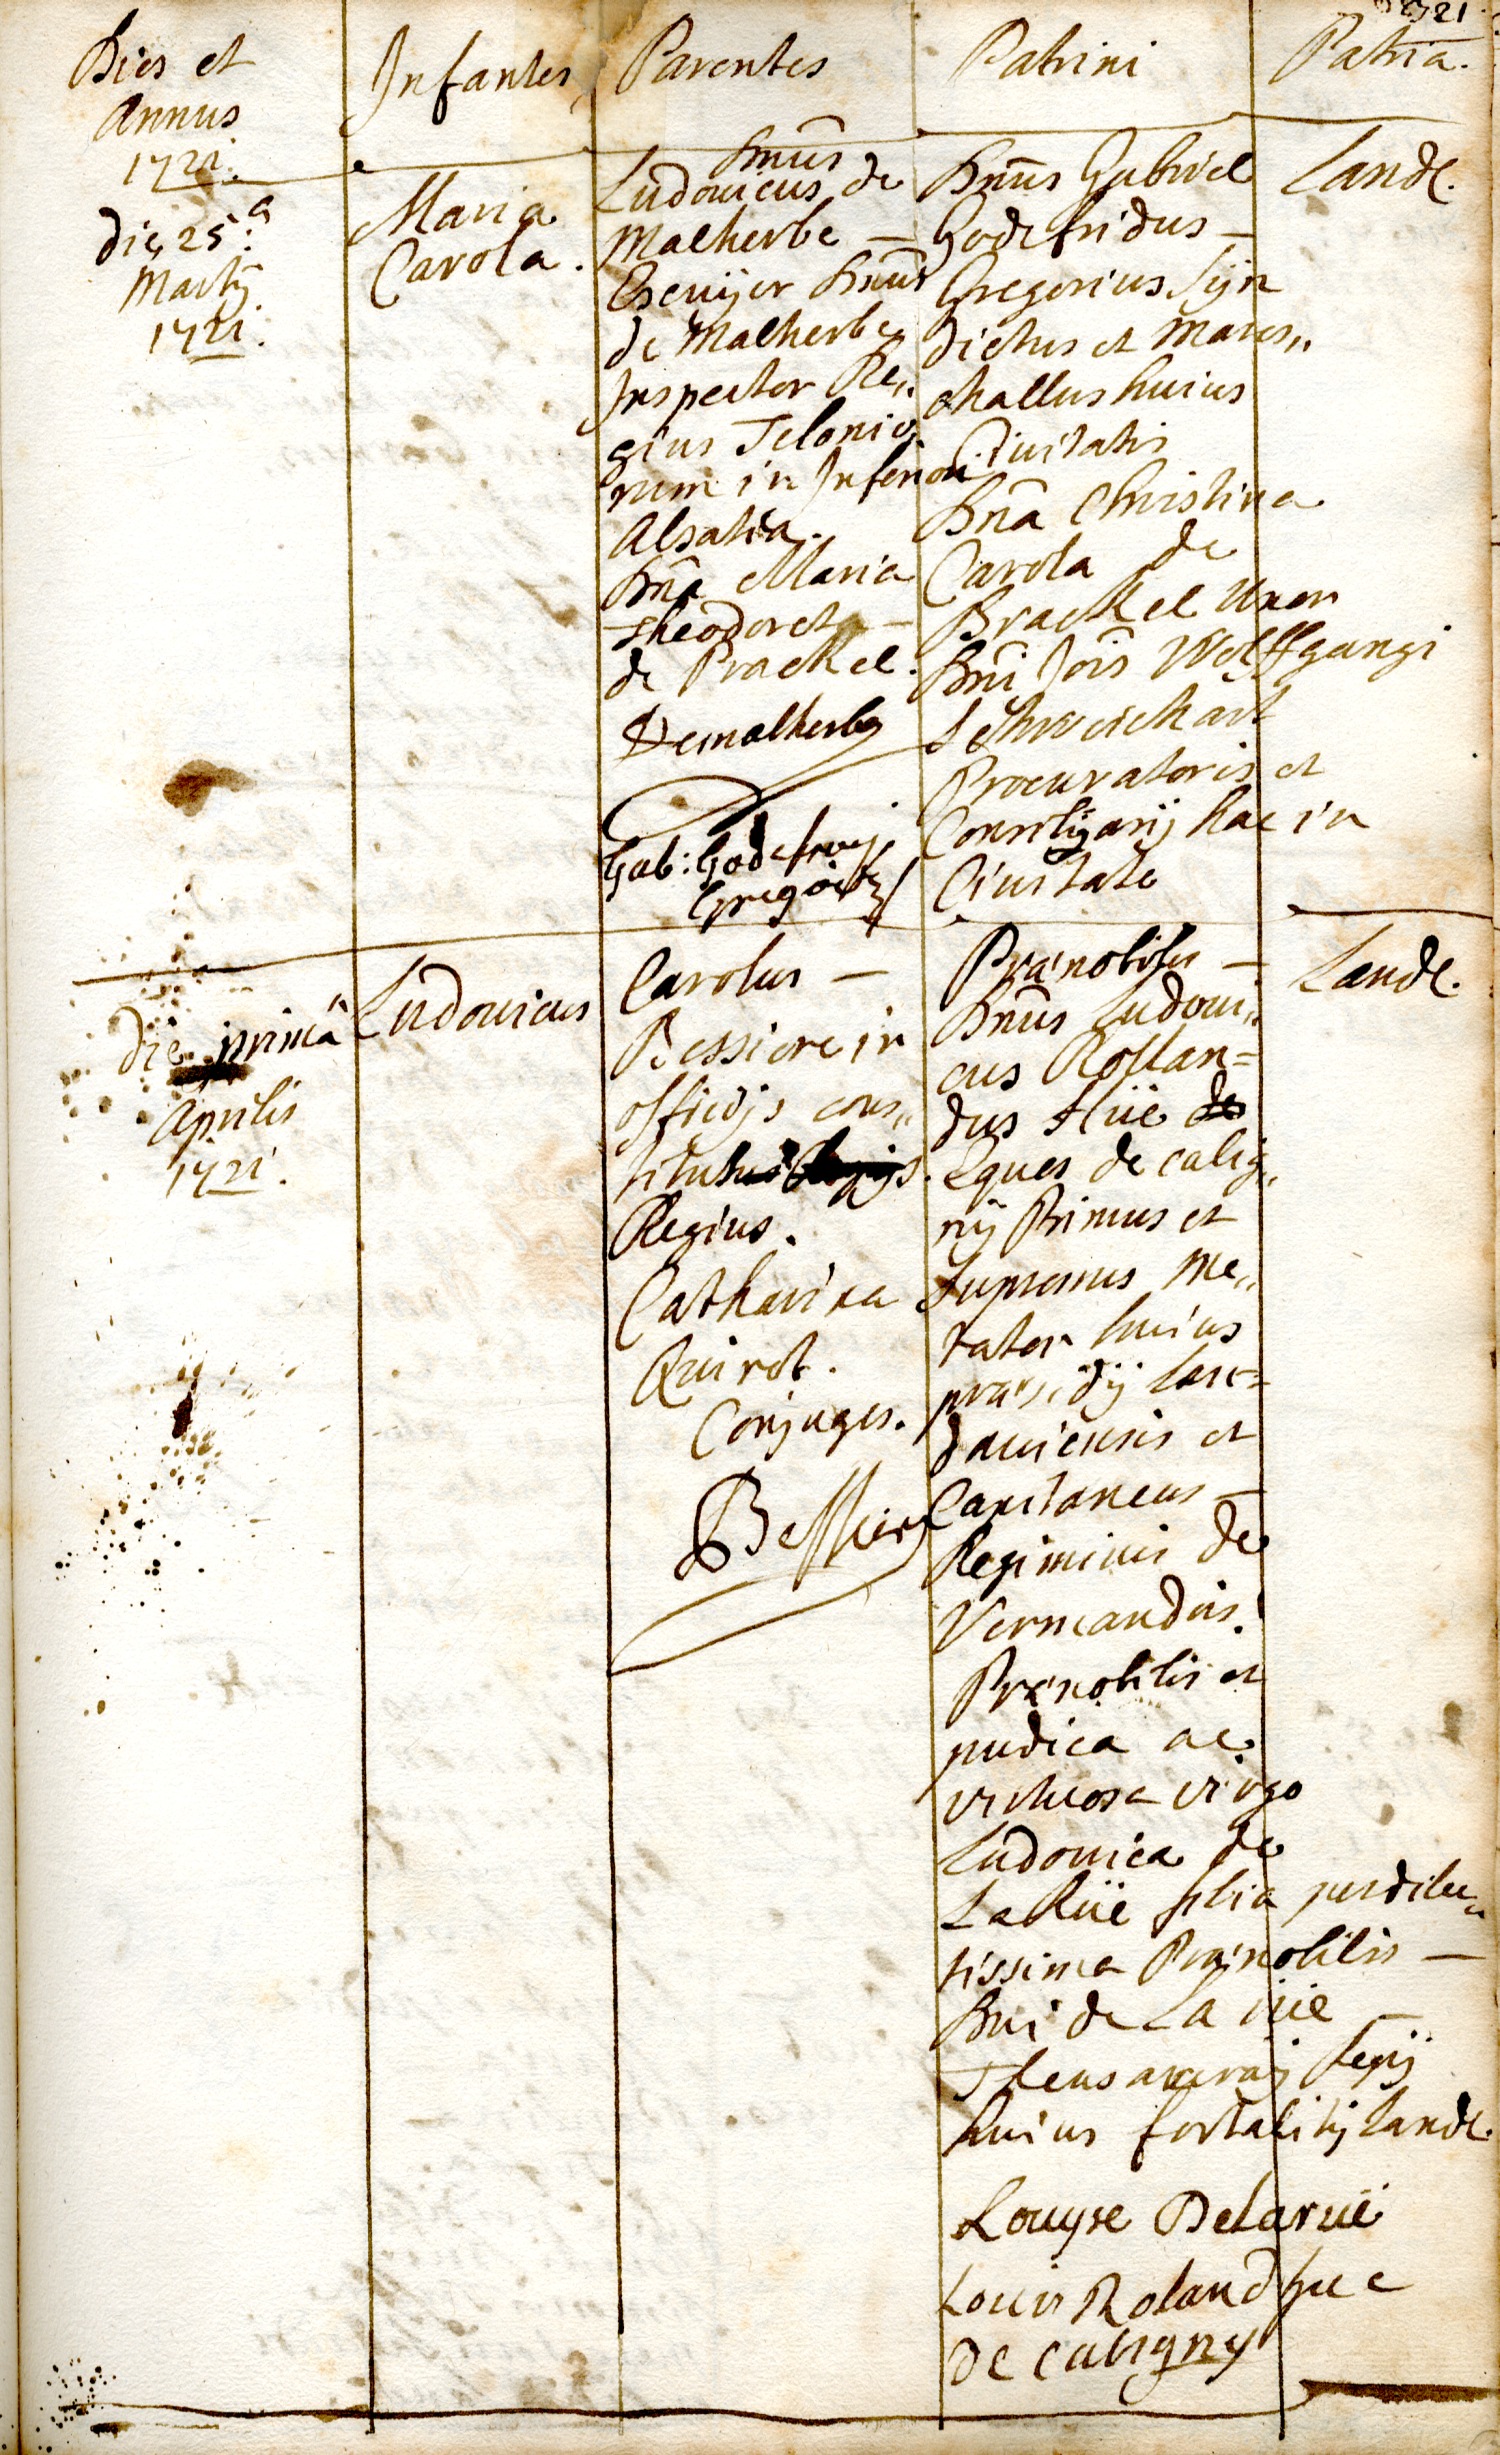 1721
Dies et
Annus
1721.
Infantes
Parentes
Patrini
Patria.
die 25.a
Martij
1721.
Maria
Carola.
Dnus
Ludovicus de
Malherbe —
Escuijer Dnus
de Malherbe
Inspector Re„
gius Telonio
rum in Inferiori
Alsatia.
Dna Maria
Theodoreta —
de Brackel.
Demalherbe
Gab: Godefroy
Gregoire
Dnus Gabriel
Godefridus —
Gregorius Syn
dicus et Mares„
challus huius
Civitatis
Dna Christina
Carola de
Brackel Uxor
Dni Jois Wolffgangi
Schweickart
Procuratoris et
Consiliarij hac in
Civitate
Landt.
die primâ
Aprilis
1721.
Ludovicus
Carolus —
Bessiere in
officijs cons„
titutus
Regius.
Catharina
Quirot.
Conjuges.
Bessiere
Prænobilis —
Dnus Ludovi„
cus Rollan=
dus Hüe de
Eques de calig„
nij Primus et
Supremus Me„
tator huius
præsidij Lan=
daviensis et
Capitaneus —
Regiminis de
Vermandois.
Prænobilis et
pudica ac
virtuosa virgo
Ludovica de
La Rüe filia perdilec„
tissima Prænobilis —
Dni de La rüe —
Thensaurarij Regij
huius fortalitij Landt.
Louyse Delarue
Louis Roland hue
de caligny
Landt.